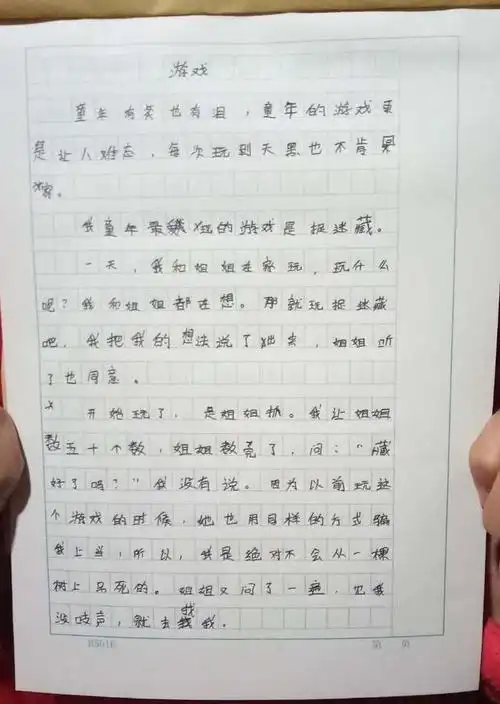 游戏
童年有笑也有泪，童年的游戏更
是让人难忘，每次玩到天黑也不肯
家。
我童年最玩的游戏是捉迷藏。
一天，我和姐姐在家玩，玩什么
呢？我和姐姐都在想。那就玩捉迷藏
吧，我把我的想法说了出来，姐姐听
了也同意。
开始玩了，是姐姐抓。我让姐姐
数五十个数，姐姐数完了，问：“藏
好了吗？”我没有说。因为以前玩这
个游戏的时候，她也用同样的方式骗
我上当，所以，我是绝对不会从一棵
树上吊死的。姐姐又问了一遍，见我
没吱声，就去找我。
第 页